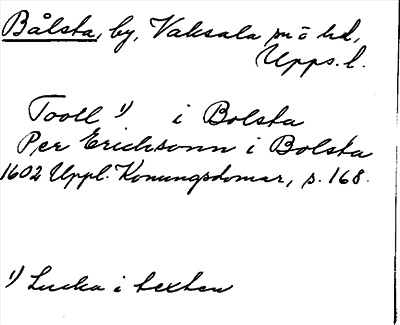 Bålsta, by, Vaksala sn o hd,
Upps. l.
Tooll 1) i Bolsta
Per Erichsonn i Bolsta
1602 Uppl. Konungsdomar, s. 168.
1) Lucka i texten